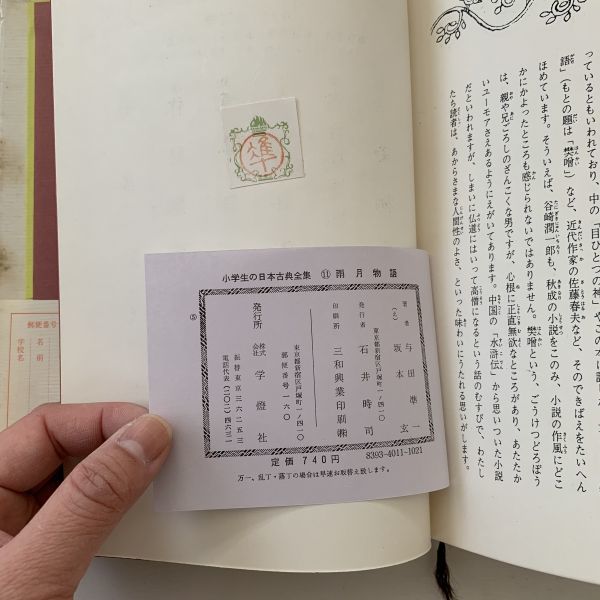 っているともいわれており、中の「目ひとつの神」や「
語」(もとの題は「樊噲」)など、近代作家の佐藤春夫など、そのできばえをたいへん
ほめています。そういえば、谷崎潤一郎も、秋成の小説をこのみ、小説の作風にどこ
かにかよったところも感じられないではありません。樊噲という、ごうけつどろぼう
は、親や兄ごろしのざんこくな男ですが、心根に正直無欲なところがあり、あたたか
いユーモアさえあるようにえがいてあります。中国の「水滸伝」から思いついた小説
だといわれますが、しまいに仏道にはいって高僧になるという話のむすびで、わたし
たち読者は、あからさまな人間性のよさ、といった味わいにうたれる思いがします。
小学生の日本古典全集 ⑪ 雨月物語
⑤
著者
与田凖一
坂本玄
東京都新宿区戸塚町一ノ四一〇
発行者 石井時司
印刷所 三和興業印刷㈱
東京都新宿区戸塚町一ノ四一〇
郵便番号一六〇
発行所 株式会社 学燈社
振替東京三六二五三
電話代表(二〇二)四六三一
定価 740円 8393-4011-1021
万一、乱丁・落丁の場合は早速お取替え致します。
郵便番号
学校名
名前